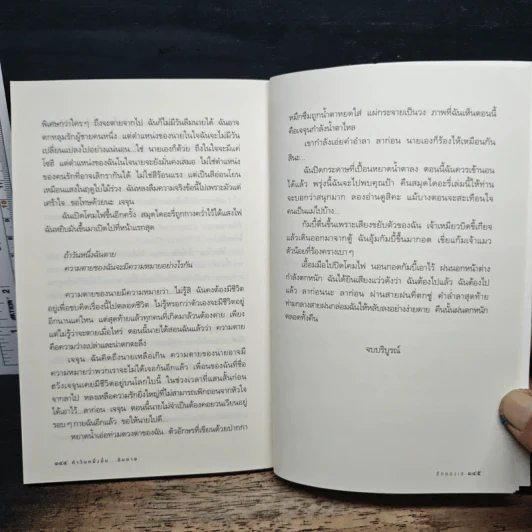 พิเศษกว่าใครๆ ถึงจะตายจากไป ฉันก็ไม่มีวันลืมนายได้ ฉันอาจ
ตกหลุมรักผู้ชายคนหนึ่ง แต่ตำแหน่งของนายในใจฉันจะไม่มีวัน
เปลี่ยนแปลงไปอย่างแน่นอน...ใช่ นายเองก็ด้วย ถึงในใจจะมีแค่
โซฮี แต่ตำแหน่งของฉันในใจนายจะยังมั่นคงเสมอ ไม่ใช่ตำแหน่ง
ของคนรักที่อาจเลิกรากันได้ ไม่ใช่สีร้อนแรง แต่เป็นสีอ่อนโยน
เหมือนแสงในฤดูใบไม้ร่วง ฉันหลงลืมความจริงข้อนี้ไปเพราะมัวแต่
เศร้าใจ...ขอโทษด้วยนะ เจจุน
ฉันเปิดโคมไฟขึ้นอีกครั้ง สมุดไดอะรี่ถูกกางคว่ำไว้ใต้แสงไฟ
ฉันหยิบมันขึ้นมาเปิดไปที่หน้าแรกสุด
ถ้าวันหนึ่งฉันตาย
ความตายของฉันจะมีความหมายอย่างไรกัน
ความตายของนายมีความหมายว่า...ไม่รู้สิ ฉันคงต้องมีชีวิต
อยู่เพื่อขบคิดเรื่องนี้ไปตลอดชีวิต ไม่รู้หรอกว่าตัวเองจะมีชีวิตอยู่
อีกนานแค่ไหน แต่สุดท้ายแล้วทุกคนที่เกิดมาล้วนต้องตาย เพียง
แต่ไม่รู้ว่าจะตายเมื่อไหร่ ตอนนี้นายได้สอนฉันแล้วว่า ความตาย
คือความว่างเปล่าและน่าตกตะลึง
เจจุน ฉันคิดถึงนายเหลือเกิน ความตายของนายอาจมี
ความหมายว่าพวกเราจะไม่ได้เจอกันอีกแล้ว เพื่อนของฉันที่ชื่อ
ฮวังเจจุนเคยมีชีวิตอยู่บนโลกใบนี้ ในช่วงเวลาที่แสนสั้นก่อน
จากลาไป หลงเหลือความรักยิ่งใหญ่ที่ไม่สามารถเพิกถอนจากหัวใจ
ได้เอาไว้...ลาก่อน เจจุน ตอนนี้นายไม่จำเป็นต้องคอยวนเวียนอยู่
รอบๆ กายฉันอีกแล้ว ขอให้นายไปดี...
หยาดน้ำเอ่อท่วมดวงตาของฉัน ตัวอักษรที่เขียนด้วยปากกา
๑๔๔
หมึกซึมถูกน้ำตาหยดใส่ แผ่กระจายเป็นวง ภาพที่ฉันเห็นตอนนี้
คือเจจุนกำลังน้ำตาไหล
เขากำลังเอ่ยคำอำลา ลาก่อน นายเองก็ร้องไห้เหมือนกัน
สินะ...
ฉันปิดกระดาษที่เปื้อนหยาดน้ำตาลง ตอนนี้ฉันควรเข้านอน
ได้แล้ว พรุ่งนี้ฉันจะไปพบคุณป้า คืนสมุดไดอะรี่เล่มนี้ให้ท่าน
จะบอกว่าสนุกมาก ลองอ่านดูสิคะ แม้บางตอนจะสะเทือนใจ
คนเป็นแม่ไปบ้าง...
กัมบี้ตื่นขึ้นเพราะเสียงขยับตัวของฉัน เจ้าเหมียวบิดขี้เกียจ
แล้วเดินออกมาจากตู้ ฉันอุ้มกัมบี้ขึ้นมากอด เขี่ยแก้มเจ้าแมว
ตัวน้อยที่ร้องครางเบาๆ
เอื้อมมือไปปิดโคมไฟ นอนกอดกัมบี้เอาไว้ ฝนนอกหน้าต่าง
กำลังตกหนัก ฉันได้ยินเสียงแว่วดังว่า ฉันต้องไปแล้ว ฉันต้องไป
แล้ว ลาก่อนนะ ลาก่อน ผ่านสายฝนที่ตกซู่ คำอำลาสุดท้าย
ท่ามกลางสายฝนกล่อมฉันให้หลับลงอย่างง่ายดาย คืนนั้นฝนตกหนัก
ตลอดทั้งคืน
จบบริบูรณ์
๑๔๕